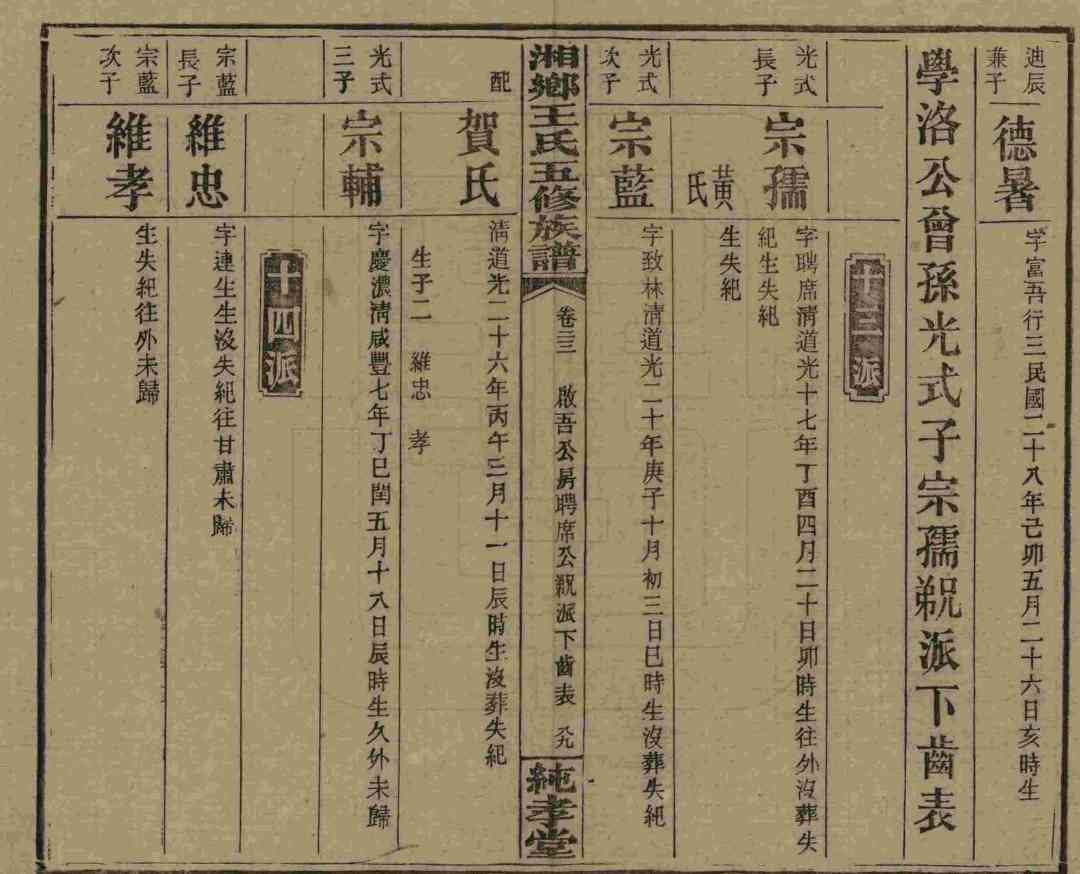 迪辰
兼子
德暑
字富吾行三民國二十八年己卯五月二十六日亥時生
學洛公曾孫光式子宗孺䘏派下齒表
十三派
光式
長子
宗孺
字聘席清道光十七年丁酉四月二十日卯時生往外沒葬失
紀生失紀
黃氏
生失紀
光式
次子
宗藍
字致林清道光二十年庚子十月初三日巳時生沒葬失紀
湘鄉王氏五修族譜
卷三三
啟吾公房聘席公派下齒表
純孝堂
配
賀氏
清道光二十六年丙午三月十一日辰時生沒葬失紀
生子二 維忠 孝
光式
三子
宗輔
字慶濃清咸豐七年丁巳閏五月十八日辰時生久外未歸
十四派
宗藍
長子
維忠
字連生生沒失紀往甘肅未歸
宗藍
次子
維孝
生失紀往外未歸